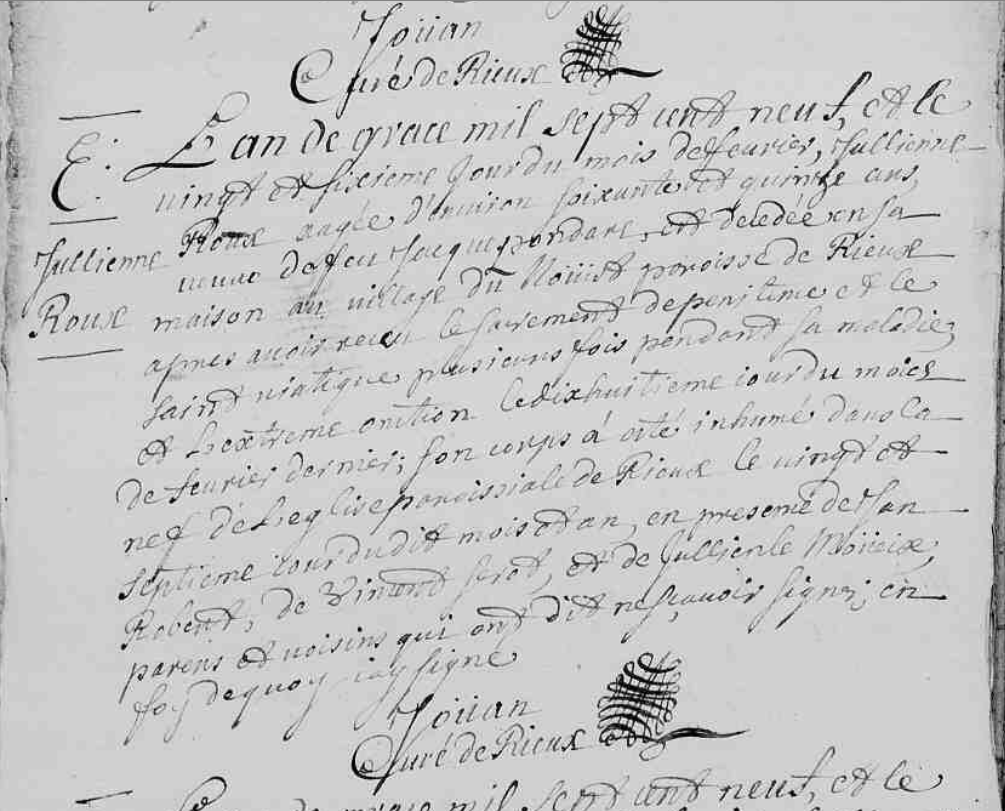 Joüan
Curé de Rieux
L'an de grace mil sept cent neuf, et le
E:
vingt et sixieme jour du mois de feurier, Jullienne
Roux aagée d'enuiron soixante et quinze ans,
Jullienne
veuue de feu Jacques pondare, est decedée en sa
Roux
maison au village du Noüist paroisse de Rieux
apres auoir receu le sacrement de penitence et le
saint viatique plusieurs fois pendant sa maladie,
et L'extreme onction le dixhuitieme iour du mois
de feurier dernier; son corps à été inhumé dans la
nef de L'eglise paroissiale de Rieux le vingt et
septieme iour dudit mois et an, en presence de Jan
Robert, de Vincent serot, et de Jullien le Moüeix,
parens et voisins qui ont dit ne sçauoir signer; en
foy dequoy iay signé
Joüan
Curé de Rieux
L'an de grace mil sept cent neuf, et le